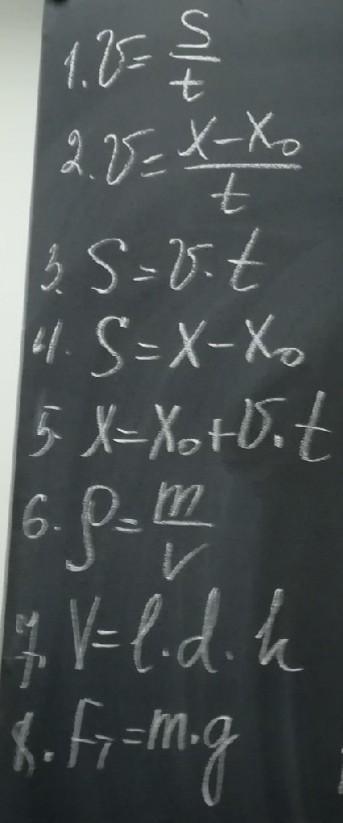 1. v = S/t
2. v = x-x₀/t
3. S = v.t
4. S = x-x₀
5. x = x₀+v.t
6. ρ = m/V
7. V = l.d.h
8. Fт = m.g